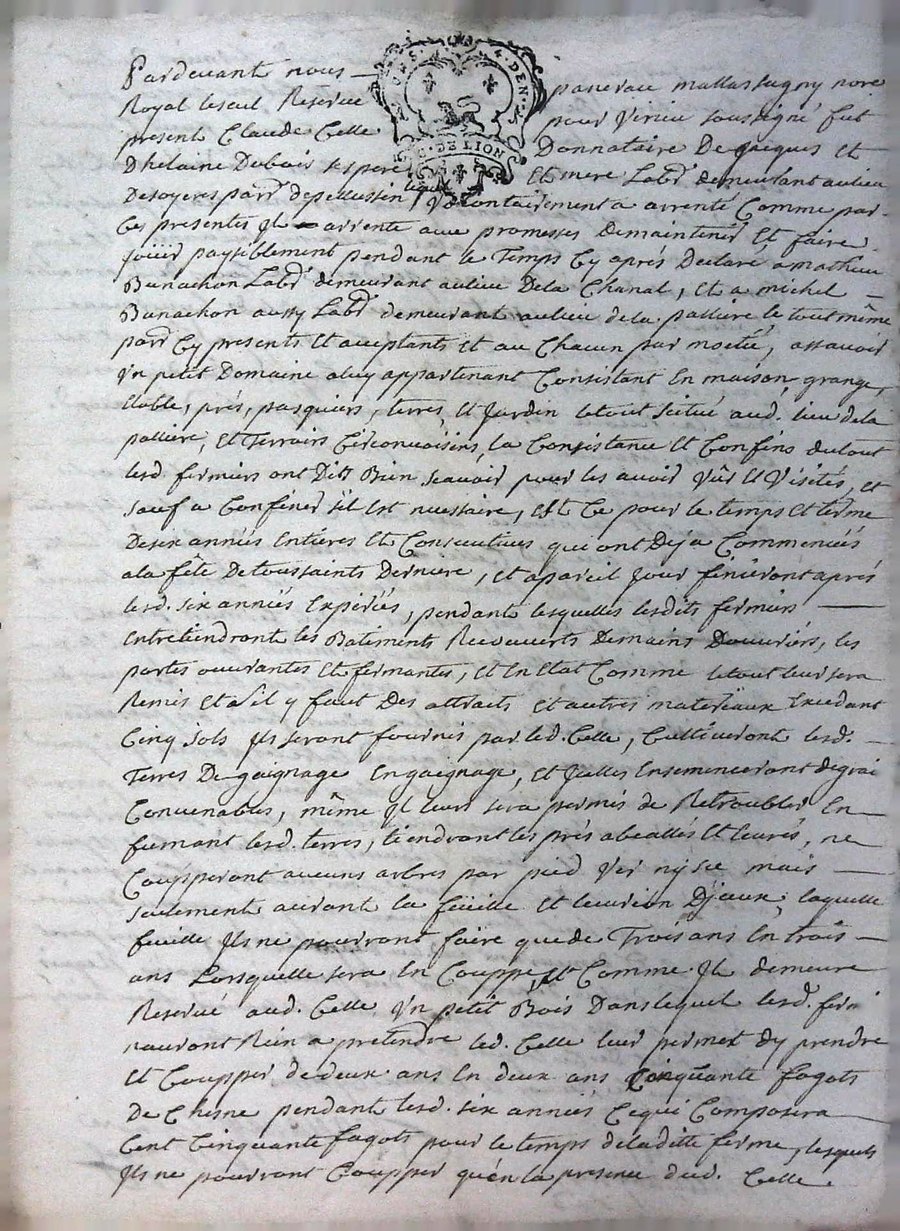 Pardevant nous
Royal reserve pour Virieu soussigné fut
present Claude Celle Donnataire De Jacques et
Dhelaine Dubois ses pere Et mere Labr. demeurant au lieu
Desoyeres parr. de pellussin lequel Volontairement a arrenté Comme par
Ces presentes Il arrente avec promesses de maintenir Et faire
jouir paysiblement pendant le Temps Cy aprés Declaré a mathieu
Bunachon Labr. demeurant au lieu Dela Chanal, Et a michel
Bunachon aussy Labr. demeurant au lieu dela palliere le tout même
parr. Cy presents Et acceptants Et au Chacun par moetié, assavoir
Vn petit Domaine a luy appartenant Consistant En maison, grange,
Etable, prés, pasquiers, terres, Et Jardin le tout scitué aud. lieu dela
palliere, Et Terroirs Circonvoisins, la Consistance Et Confins du tout
lesd. fermiers ont Dit Bien scavoir pour les avoir Vûs Et Visités, et
sauf a Confiner s'il Est necessaire, Et Ce pour le temps Et terme
De six années Entieres Et Consecutives qui ont Deja Commencés
a la fête De toussaints Derniere, Et a pareil Jour finieront aprés
lesd. six années Expirées, pendant lesquelles lesdits fermiers
Entretiendront les Batiments Recouverts De mains Douvriers, les
portes ouvrantes Et fermantes, Et En Etat Comme le tout leur sera
Remis Et a s'il y faut Des attraits Et autres materiaux Excedant
Cinq sols Ils seront fournis par led. Celle, Cultiveront lesd.
Terres De gaignage En gaignage, Et Icelles Ensemenceront de grai
Convenables, même Il leurs sera permis de Retroubler En
fumant lesd. terres, tiendront les prés Et leurés, ne
Coupperont aucuns arbres par pied Ver ny sec mais
seulement auront la feüille Et Dyceux, laquelle
feuille Ils ne pourront faire que de Trois ans En trois
ans Lorsquelle sera En Couppe, Et Comme Il demeure
Reservé aud. Celle Vn petit Bois Dans lequel lesd. fermi
nauront Rien a pretendre led. Celle leur permet dy prendre
Et Coupper de deux ans En deux ans Cinquante fagots
De Chesne pendant lesd. six années Ce qui Composera
Cent Cinquante fagots pour le temps de la ditte ferme, lesquels
Ils ne pourront Coupper qu'en la presence dud. Celle.
DE LION